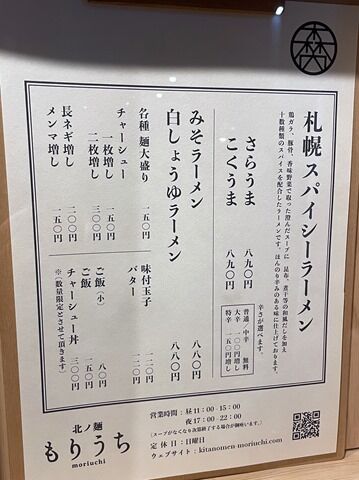 札幌スパイシーラーメン
鶏ガラ、豚骨、香味野菜で取った澄んだスープに 昆布、煮干等の和風だしを加え
十数種類のスパイスを配合したラーメンです。ほんのり辛みのある味に仕上げております。
さらうま 八九〇円
こくうま 八九〇円
辛さが選べます。
普通/中辛 無料
大辛 一〇〇円増し
特辛 一五〇円増し
みそラーメン 八八〇円
白しょうゆラーメン 八八〇円
各種 麺大盛り 一五〇円
チャーシュー
一枚増し 一五〇円
二枚増し 三〇〇円
長ネギ増し 一五〇円
メンマ増し 一五〇円
味付玉子 一二〇円
バター 一二〇円
ご飯(小) 八〇円
ご飯 一五〇円
チャーシュー丼 三〇〇円
※(数量限定とさせて頂きます)
北ノ麺
もりうち
moriuchi
営業時間:昼11:00-15:00
夜17:00-22:00
(スープがなくなり次第終了する場合が御座います。)
定休日:日曜日
ウェブサイト:kitanomen-moriuchi.com